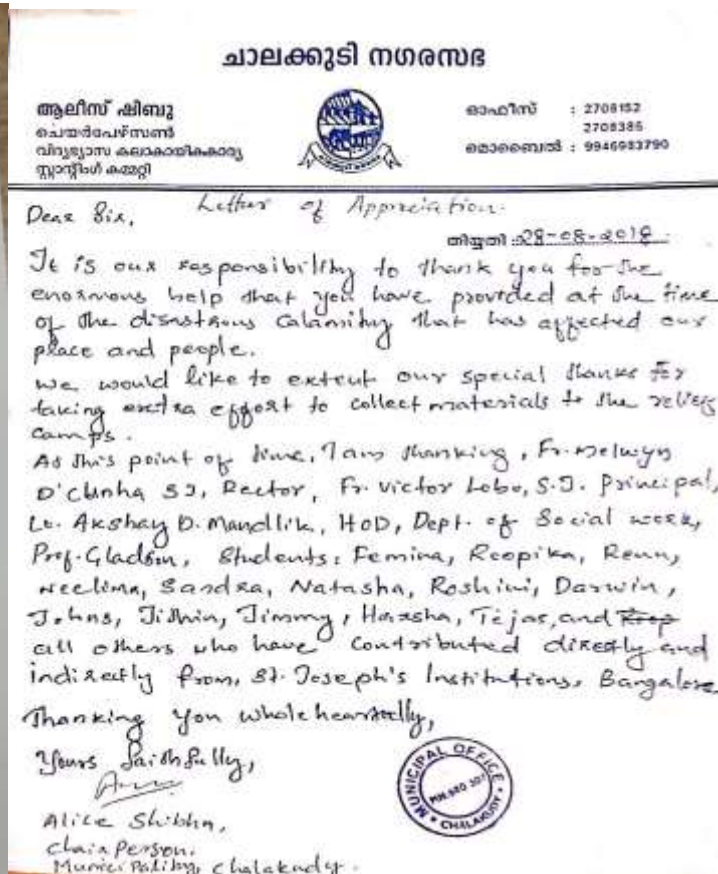 ചാലക്കുടി നഗരസഭ
ആലീസ് ഷിബു
ചെയർപേഴ്സൺ
വിദ്യഭ്യാസ കലാകായികകാര്യ
സ്റ്റാന്റിംഗ് കമ്മറ്റി
ഓഫീസ് : 2708152
2708385
മൊബൈൽ : 9946983790
Letter of Appreciation.
Dear Sir,
തിയ്യതി : 28-08-2018
It is our responsibility to thank you for the
enormous help that you have provided at the time
of the disastrous calamity that has affected our
place and people.
we would like to extent our special thanks for
taking extra effort to collect materials to the relief
camps.
At this point of time, I am thanking, Fr. Melwyn
D'Cunha SJ, Rector, Fr. Victor Lobo, S.J. Principal,
Lt. Akshay D. Mandlik, HOD, Dept. of Social work,
Prof. Gladson, Students: Femina, Roopika, Renu,
Neelima, Sandra, Natasha, Roshini, Darwin,
Johns, Jithin, Jimmy, Harsha, Tejas, and
all others who have contributed directly and
indirectly from, St. Joseph's Institutions, Bangalore
Thanking you wholeheartedly,
Yours faithfully,
Alice Shibhu,
Chair Person,
Municipality, Chalakudy.
MUNICIPAL OFFICE
CHALAKUDY